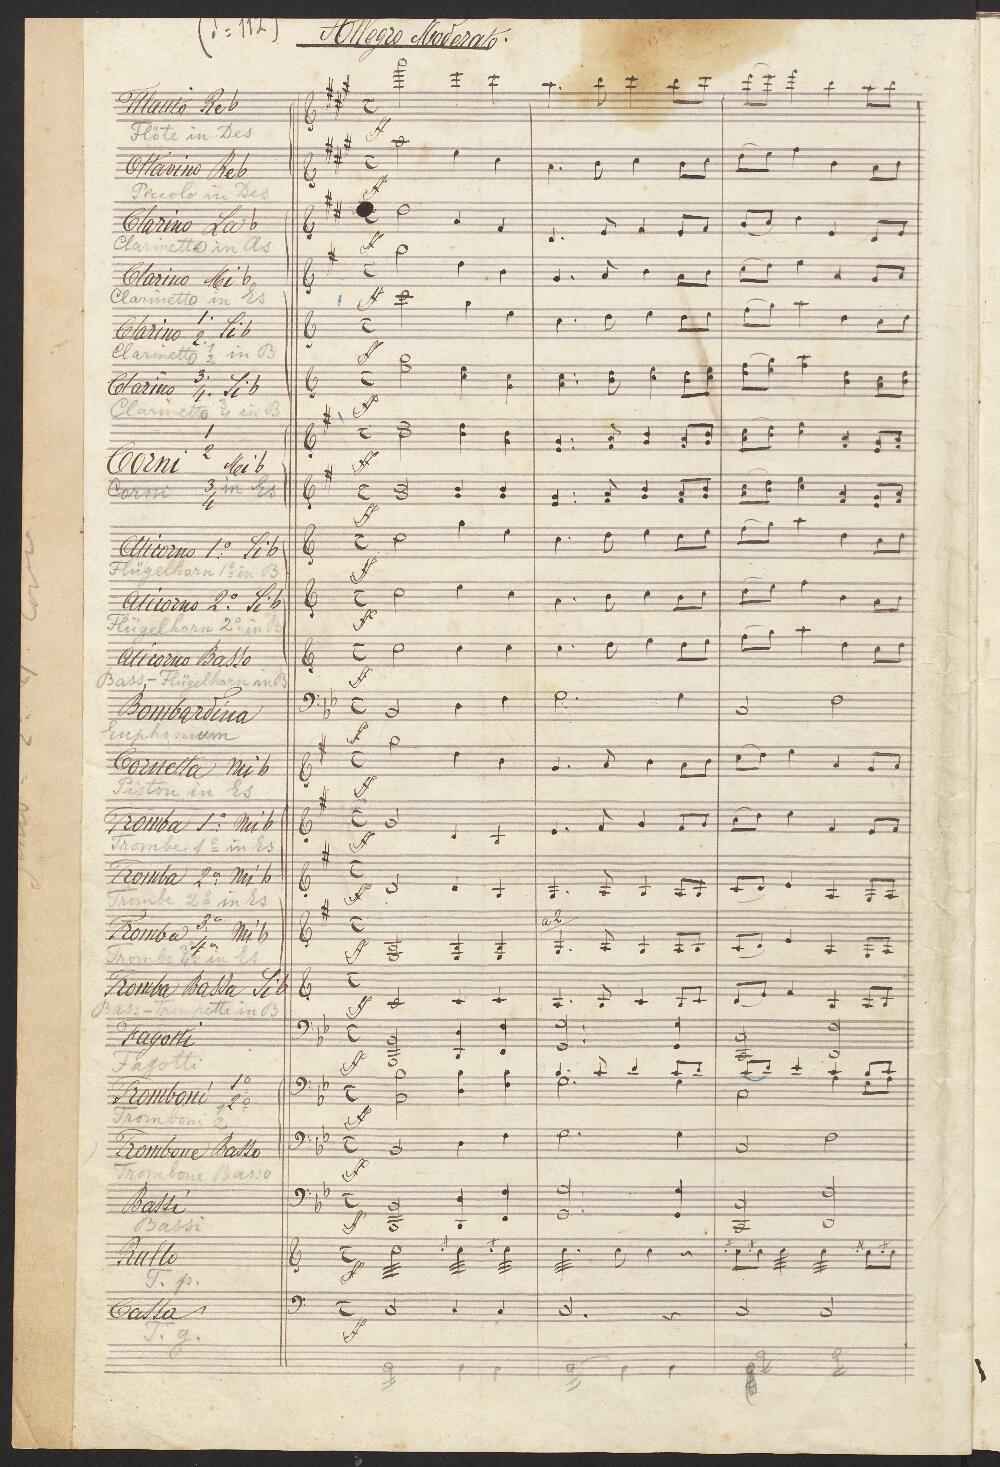 (♩= 112) Allegro Moderato.
Flauto Reb
Flöte in Des
Ottavino Reb
Piccolo in Des
Clarino Lab
Clarinetto in As
Clarino Mib
Clarinetto in Es
Clarino 1. 2. Sib
Clarinetto 1 2 in B
Clarino 3. 4. Sib
Clarinetto 3 4 in B
Corni 1 2 Mib
Corni 3 4 in Es
Clicorno 1º Sib
Flügelhorn 1º in B
Clicorno 2º Sib
Flügelhorn 2º in B
Clicorno Basso
Bass-Flügelhorn in B
Bombardina
Euphonium
Cornetta Mib
Piston in Es
Tromba 1ª Mib
Trombe 1º in Es
Tromba 2ª Mib
Trombe 2º in Es
Tromba 3ª 4ª Mib
a 2
Trombe 3 4 in Es
Tromba Bassa Sib
Bass-Trompette in B
Fagotti
Fagotti
Tromboni 1º 2º
Tromboni 1 2
Trombone Basso
Trombone Basso
Bassi
Bassi
Rullo
T. p.
Cassa
T. g.